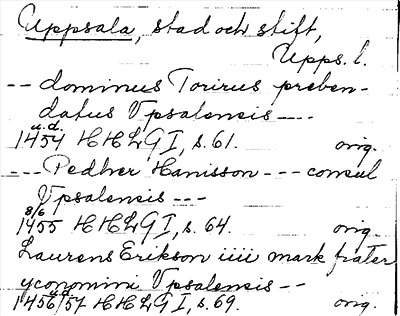 Uppsala, stad och stift,
Upps. l.
-- dominus Torirus preben-
datus Vpsalensis ---
u.d.
1454 HHLG I, s. 61. orig.
--- Pedher Hanisson --- consul
Vpsalensis ---
8/6
1455 HHLG I, s. 64. orig.
Laurens Erikson iiii mark frater
yconomini Vpsalensis --
u.d.
1456/57 HHLG I, s. 69. orig.